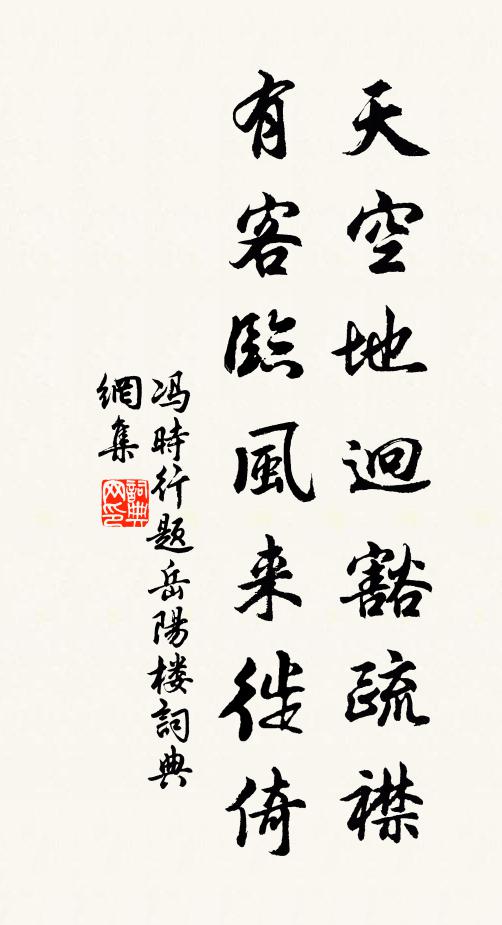 天空地迥豁疏襟
有客臨風来徙倚
冯時行题岳陽楼詞典
網集
詞典网印